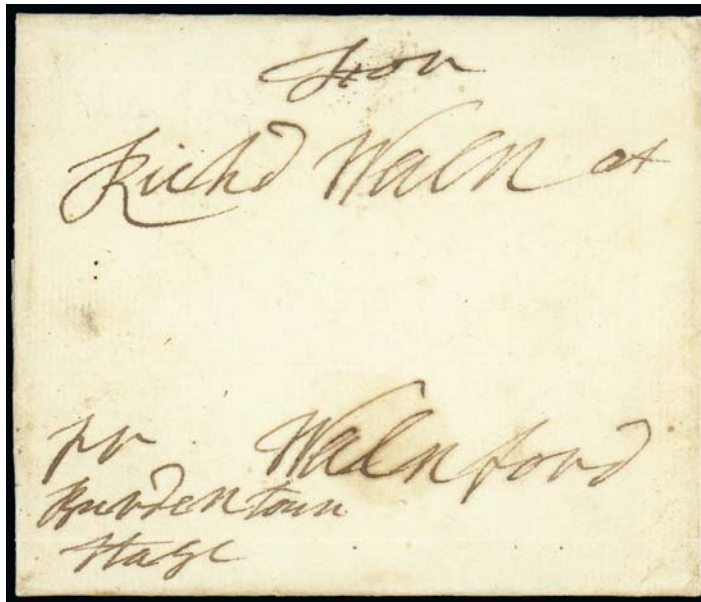 For
Richd Waln at
Walnford
pr
Burdentown
Stage